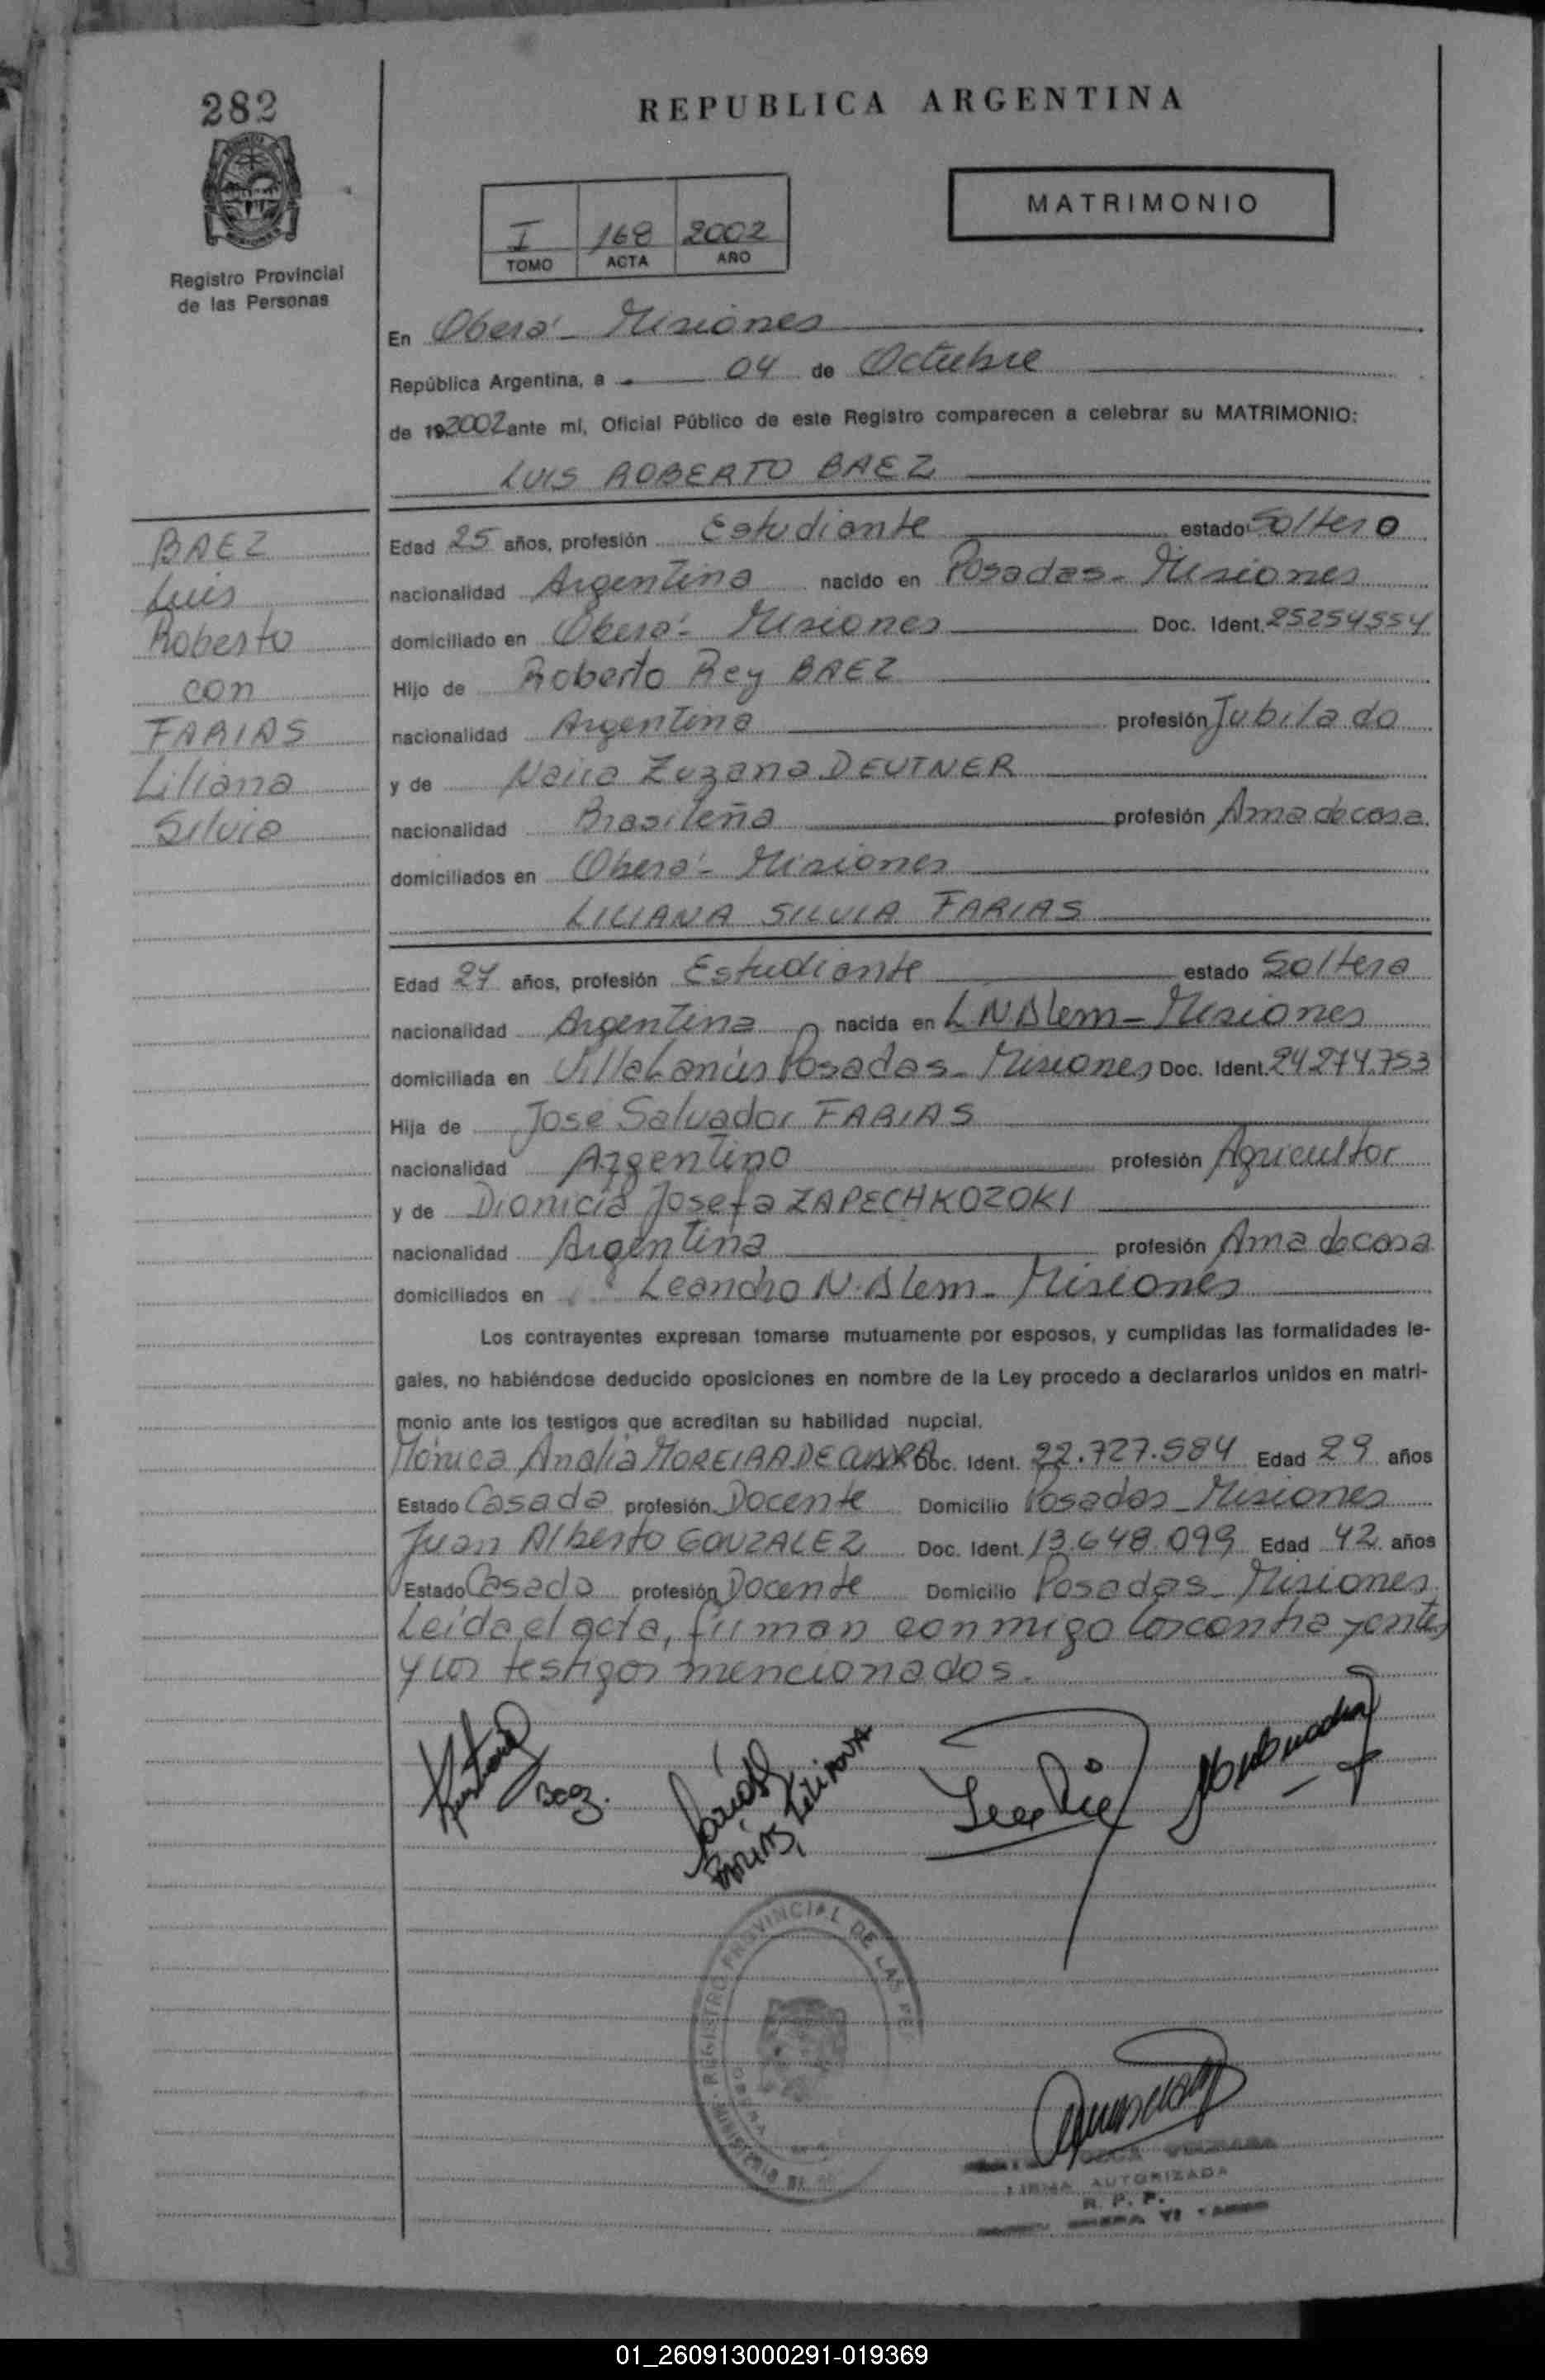 282
REPUBLICA ARGENTINA
Registro Provincial
de las Personas
I 168 2002
TOMO ACTA AÑO
MATRIMONIO
En Oberá - Misiones
República Argentina, a 04 de Octubre
de 192002 ante mí, Oficial Público de este Registro comparecen a celebrar su MATRIMONIO:
LUIS ROBERTO BAEZ
BAEZ
Luis
Roberto
con
FARIAS
Liliana
Silvia
Edad 25 años, profesión Estudiante estado Soltero
nacionalidad Argentina nacido en Posadas - Misiones
domiciliado en Oberá - Misiones Doc. Ident. 25254554
Hijo de Roberto Rey BAEZ
nacionalidad Argentina profesión Jubilado
y de Naira Zuzana DEUTNER
nacionalidad Brasileña profesión Ama de casa
domiciliados en Oberá - Misiones
LILIANA SILVIA FARIAS
Edad 27 años, profesión Estudiante estado Soltera
nacionalidad Argentina nacida en L N Alem - Misiones
domiciliada en Villa Lanús Posadas - Misiones Doc. Ident. 24.274.753
Hija de José Salvador FARIAS
nacionalidad Argentino profesión Agricultor
y de Dionicia Josefa ZAPECHKOZOKI
nacionalidad Argentina profesión Ama de casa
domiciliados en Leandro N. Alem - Misiones
Los contrayentes expresan tomarse mutuamente por esposos, y cumplidas las formalidades le-
gales, no habiéndose deducido oposiciones en nombre de la Ley procedo a declararlos unidos en matri-
monio ante los testigos que acreditan su habilidad nupcial.
Mónica Analia MOREIRA DE Doc. Ident. 22.727.584 Edad 29 años
Estado Casada profesión Docente Domicilio Posadas - Misiones
Juan Alberto GONZALEZ Doc. Ident. 13.648.099 Edad 42 años
Estado Casado profesión Docente Domicilio Posadas - Misiones
Leída el acta, firman conmigo los contrayentes
y los testigos mencionados.
Baez.
FARIAS, LILIANA
REGISTRO PROVINCIAL DE LAS PE
MINISTERIO DE
OBERA
FIRMA AUTORIZADA
R. P. P.
01_260913000291-019369